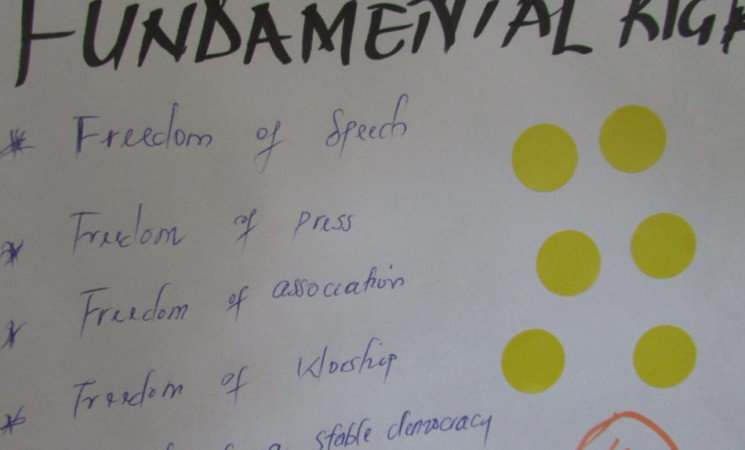 FUNDAMENTAL RIG
* Freedom of Speech
* Freedom of press
* Freedom of association
* Freedom of Worship
a stable democracy